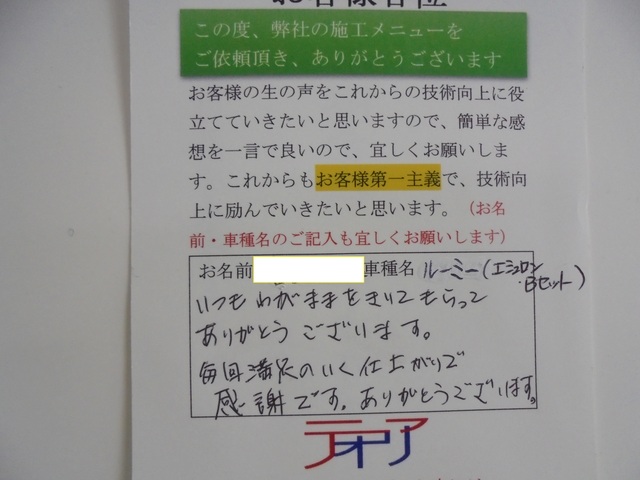 お客様各位
この度、弊社の施工メニューを
ご依頼頂き、ありがとうございます
お客様の生の声をこれからの技術向上に役
立てていきたいと思いますので、簡単な感
想を一言で良いので、宜しくお願いしま
す。これからもお客様第一主義で、技術向
上に励んでいきたいと思います。（お名
前・車種名のご記入も宜しくお願いします）
お名前 車種名 ルーミー(エシュロン
・Bセット)
いつもわがままをきいてもらって
ありがとうございます。
毎回満足のいく仕上がりで
感謝です。ありがとうございます。
テオリア